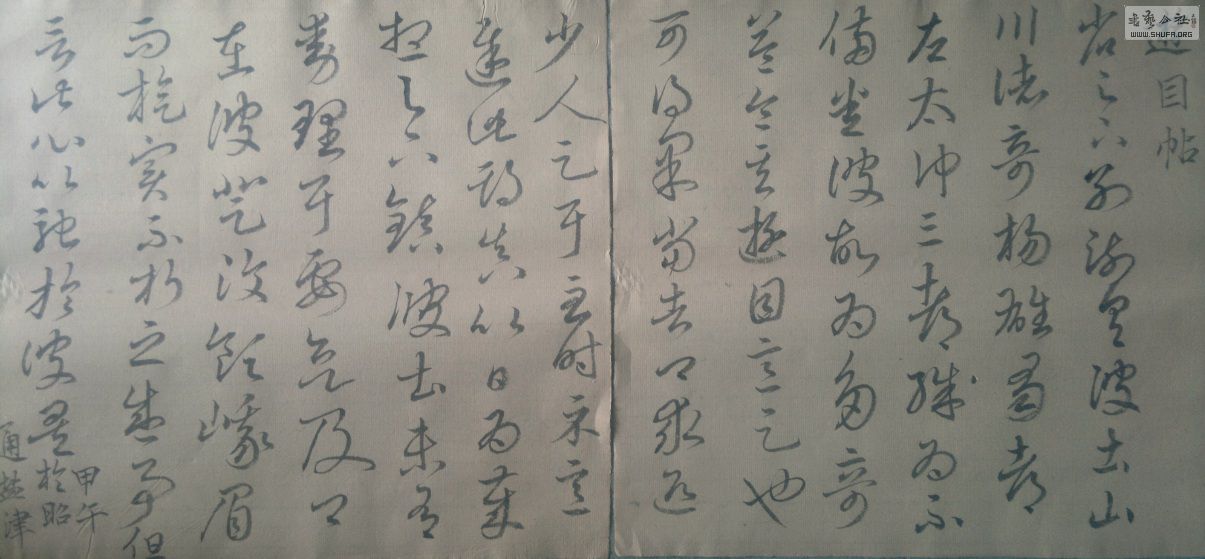 書藝公社
WWW.SHUFA.ORG
遊目帖
省足下别疏具彼土山
川諸奇楊雄蜀都
左太冲三都殊为不
備悉彼故为多奇
益令其遊目意足也
可得果當告卿求迎
少人足耳至时示意
遲此期真以日为歲
想足下鎮彼土未有
動理耳要欲及卿
在彼登汶領峨眉
而旋実不朽之盛事但
言此心以馳於彼矣
甲午
於昭
通盐津